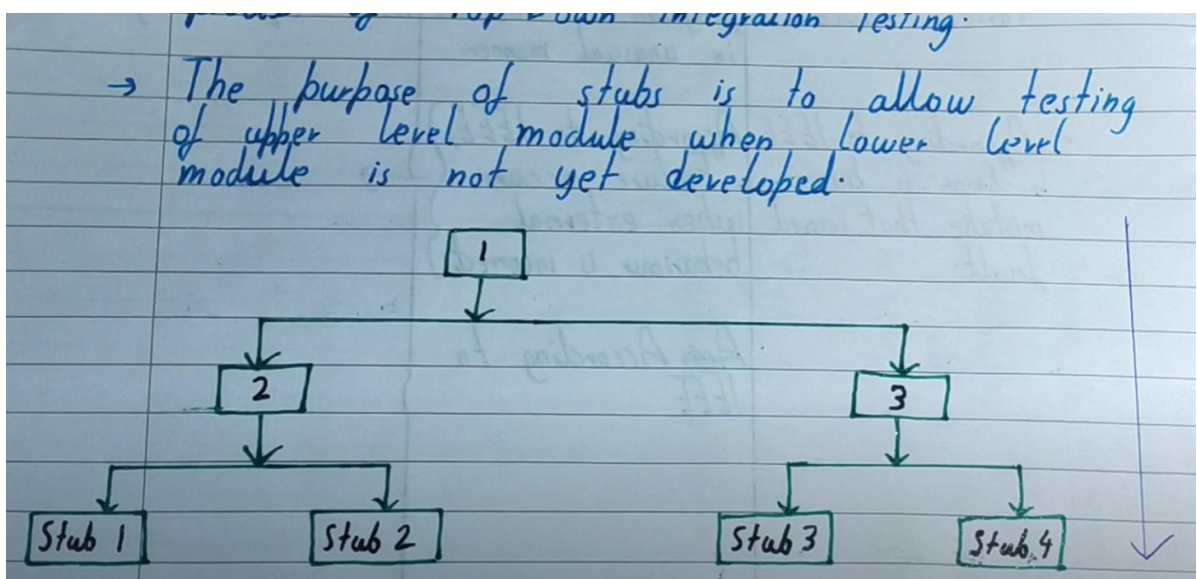 Top Down Integration Testing.
→ The purpose of stubs is to allow testing
of upper level module when lower level
module is not yet developed.
1
2
3
Stub 1
Stub 2
Stub 3
Stub 4